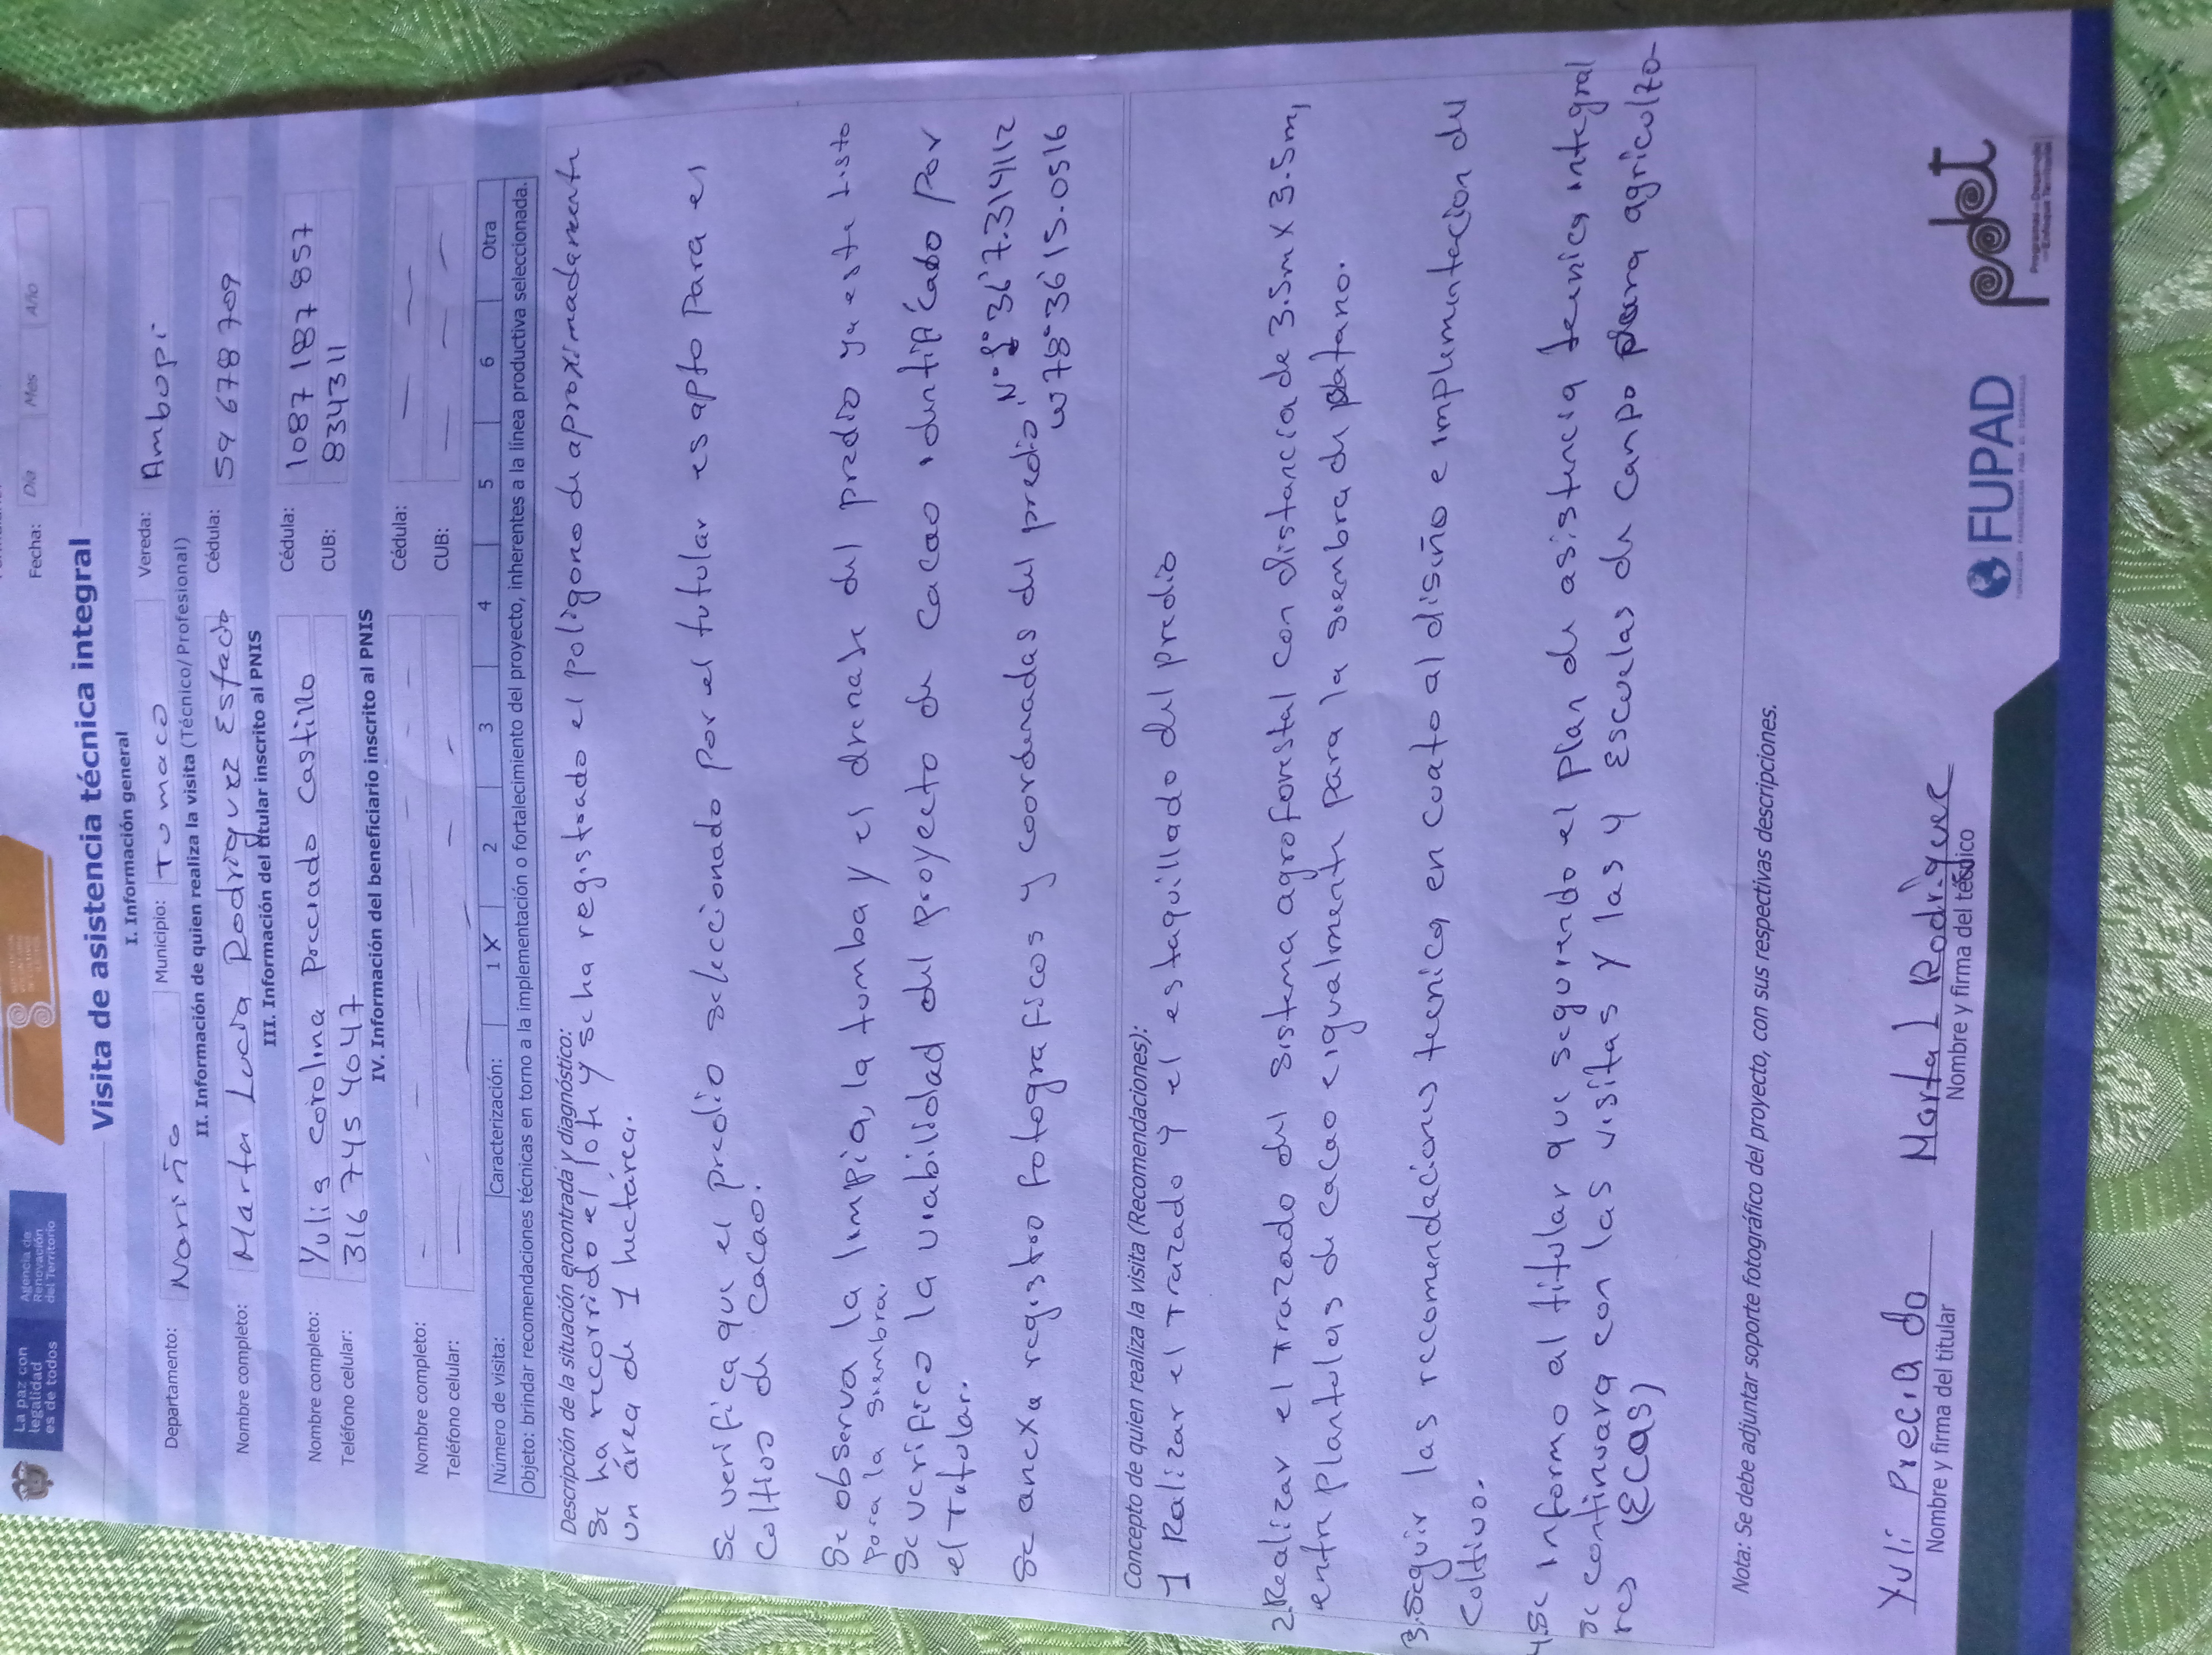 La paz con
legalidad
es de todos
Agencia de
Renovación
del Territorio
Fecha: Día Mes Año
Visita de asistencia técnica integral
I. Información general
Departamento: Nariño Municipio: Tumaco Vereda: Ambupi
II. Información de quien realiza la visita (Técnico/Profesional)
Nombre completo: Marta Lucia Rodriguez Esfacio Cédula: 59 678 709
III. Información del titular inscrito al PNIS
Nombre completo: Yulis Carolina Preciado Castillo Cédula: 1087 187 857
Teléfono celular: 316 745 4047 CUB: 834311
IV. Información del beneficiario inscrito al PNIS
Nombre completo: Cédula:
Teléfono celular: CUB:
Número de visita: Caracterización: 1 X 2 3 4 5 6 Otra
Objeto: brindar recomendaciones técnicas en torno a la implementación o fortalecimiento del proyecto, inherentes a la línea productiva seleccionada.
Descripción de la situación encontrada y diagnóstico:
Se ha recorrido el lote y se ha registrado el poligono de aproximadamente
un área de 1 hectárea.
Se verifica que el predio seleccionado por el tutular es apto para el
coltivo de cacao.
Se observa la limpia, la tumba y el drenase del predio ya este listo
para la siembra.
Se verifico la viabilidad del proyecto de cacao identificado por
el Tutular.
Se anexa registro fotograficos y coordenadas del predio N° 1°36'7.314112
W 78°36'15.0516
Concepto de quien realiza la visita (Recomendaciones):
1 Realizar el trazado y el estaquillado del predio
2. Realizar el trazado del sistema agroforestal con distancia de 3.5m x 3.5m,
entre plantulas de cacao e igualmente para la siembra de platano.
3. Seguir las recomendaciones tecnica en cuato al diseño e implementacion del
coltivo.
4. Se informo al titular que seguiendo el plan de asistencia tecnica integral
se continuara con las visitas y las y Escuelas de canpo para agricolto-
res (ECAS)
Nota: Se debe adjuntar soporte fotográfico del proyecto, con sus respectivas descripciones.
Yuli Preciado Marta L Rodriguez
Nombre y firma del titular Nombre y firma del técnico
FUPAD
pdet
Programas de Desarrollo
con Enfoque Territorial